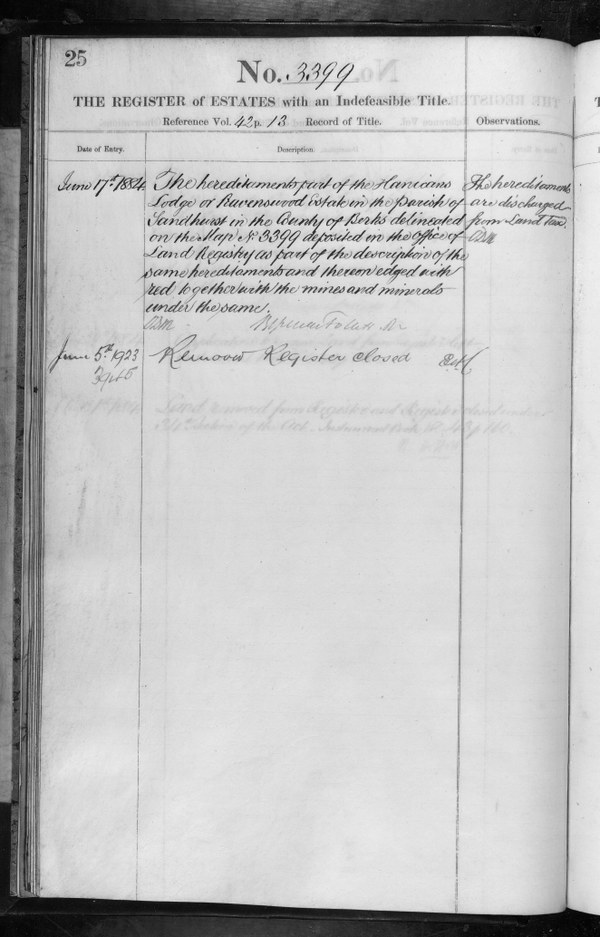 25
No. 3399
THE REGISTER of ESTATES with an Indefeasible Title.
Reference Vol. 42 p. 13 Record of Title.
Observations.
Date of Entry.
Description.
June 17th 1884
The hereditaments part of the Hanicans
Lodge or Ravenswood Estate in the Parish of
Sandhurst in the County of Berks delineated
on the Map No. 3399 deposited in the Office of
Land Registry as part of the description of the
same hereditaments and thereon edged with
red together with the mines and minerals
under the same.
The hereditaments
are discharged
from Land Tax.
June 5th 1923
Removed Register closed